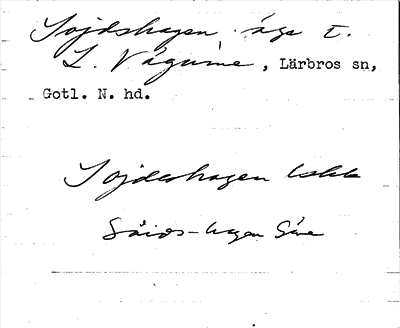 Sojdshagen, äga t.
L. Vägume, Lärbros sn,
Gotl. N. hd.
Sojdeshagen
Såios-hagen Säve